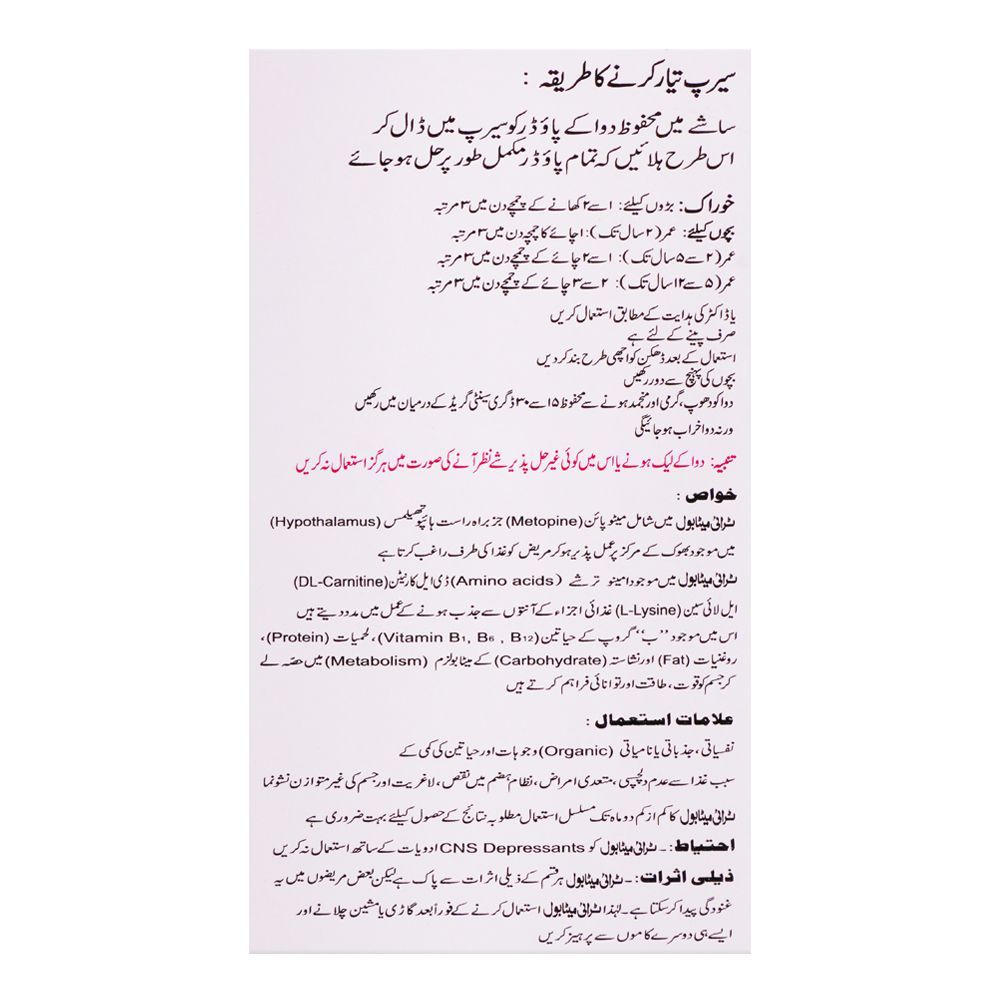 سیرپ تیار کرنے کا طریقہ :
ساشے میں محفوظ دوا کے پاؤڈر کو سیرپ میں ڈال کر
اس طرح ہلائیں کہ تمام پاؤڈر مکمل طور پر حل ہو جائے
خوراک: بڑوں کیلئے: ۱ سے ۲ کھانے کے چمچے دن میں ۳ مرتبہ
بچوں کیلئے: عمر (۲ سال تک): ۱ چائے کا چمچہ دن میں ۳ مرتبہ
عمر (۲ سے ۵ سال تک): ۱ سے ۲ چائے کے چمچے دن میں ۳ مرتبہ
عمر (۵ سے ۱۲ سال تک): ۲ سے ۳ چائے کے چمچے دن میں ۳ مرتبہ
یا ڈاکٹر کی ہدایت کے مطابق استعمال کریں
صرف پینے کے لئے ہے
استعمال کے بعد ڈھکن کو اچھی طرح بند کر دیں
بچوں کی پہنچ سے دور رکھیں
دوا کو دھوپ، گرمی اور منجمد ہونے سے محفوظ ۱۵ سے ۳۰ ڈگری سینٹی گریڈ کے درمیان میں رکھیں
ورنہ دوا خراب ہو جائیگی
تنبیہ: دوا کے لیک ہونے یا اس میں کوئی غیر حل پذیر شے نظر آنے کی صورت میں ہرگز استعمال نہ کریں
خواص :
ٹرائی میٹابول میں شامل میٹوپائن (Metopine) جز براہ راست ہائپوتھیلمس (Hypothalamus)
میں موجود بھوک کے مرکز پر عمل پذیر ہو کر مریض کو غذا کی طرف راغب کرتا ہے
ٹرائی میٹابول میں موجود امینو ترشے (Amino acids) ڈی ایل کارنیٹن (DL-Carnitine)
ایل لائی سین (L-Lysine) غذائی اجزاء کے آنتوں سے جذب ہونے کے عمل میں مدد دیتے ہیں
اس میں موجود ”ب“ گروپ کے حیاتین (Vitamin B1, B6 , B12)، لحمیات (Protein)،
روغنیات (Fat) اور نشاستہ (Carbohydrate) کے میٹابولزم (Metabolism) میں حصہ لے
کر جسم کو قوت، طاقت اور توانائی فراہم کرتے ہیں
علامات استعمال :
نفسیاتی، جذباتی یا نامیاتی (Organic) وجوہات اور حیاتین کی کمی کے
سبب غذا سے عدم دلچسپی، متعدی امراض، نظام ہضم میں نقص، لاغریت اور جسم کی غیر متوازن نشونما
ٹرائی میٹابول کا کم از کم دو ماہ تک مسلسل استعمال مطلوبہ نتائج کے حصول کیلئے بہت ضروری ہے
احتیاط :۔ ٹرائی میٹابول کو CNS Depressants ادویات کے ساتھ استعمال نہ کریں
ذیلی اثرات :۔ ٹرائی میٹابول ہر قسم کے ذیلی اثرات سے پاک ہے لیکن بعض مریضوں میں یہ
غنودگی پیدا کر سکتا ہے۔ لہٰذا ٹرائی میٹابول استعمال کرنے کے فوراً بعد گاڑی یا مشین چلانے اور
ایسے ہی دوسرے کاموں سے پرہیز کریں